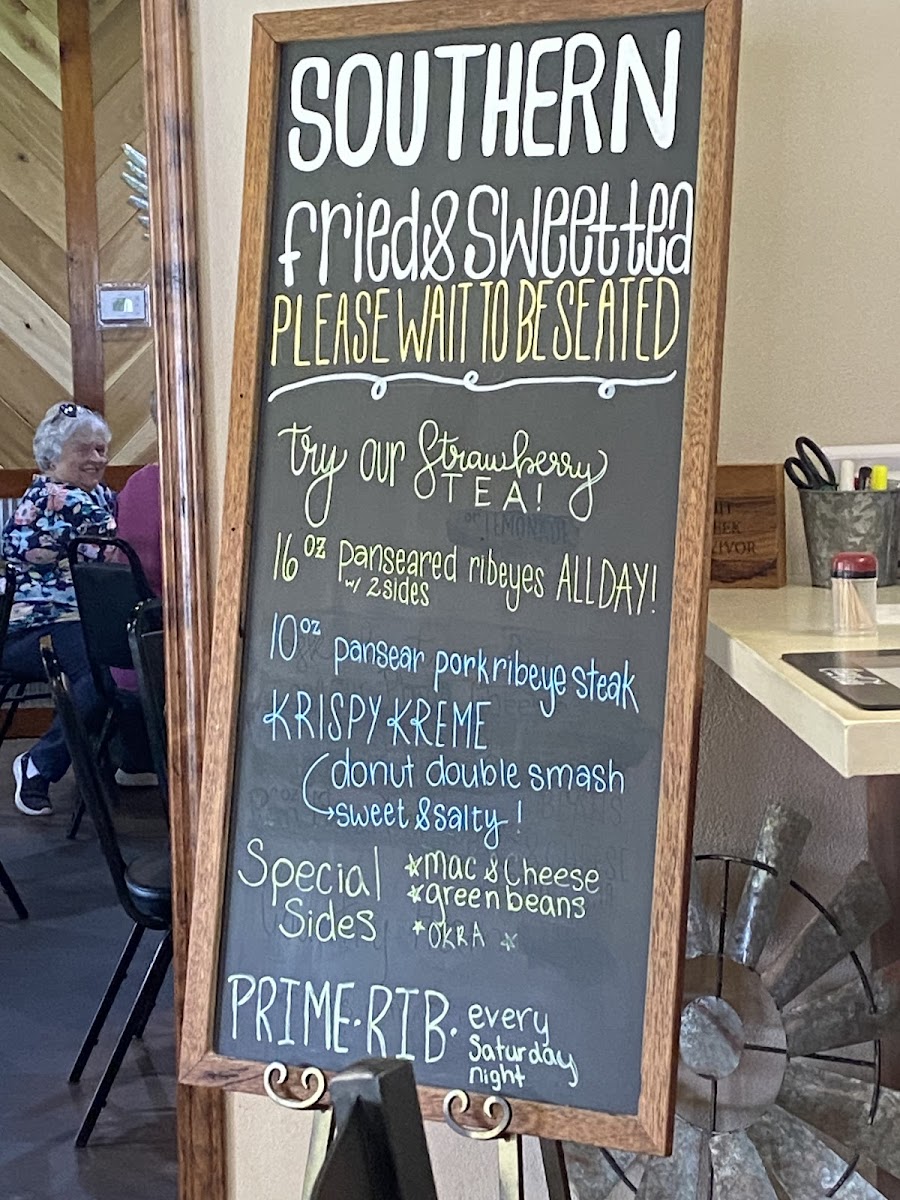 SOUTHERN
fried & sweet tea
PLEASE WAIT TO BE SEATED
try our Strawberry
TEA!
or LEMONADE
16oz panseared ribeyes ALL DAY!
w/ 2 sides
10oz pansear pork ribeye steak
KRISPY KREME
donut double smash
sweet & salty!
Special
Sides
mac & Cheese
green beans
OKRA
PRIME · RIB ·
every
Saturday
night